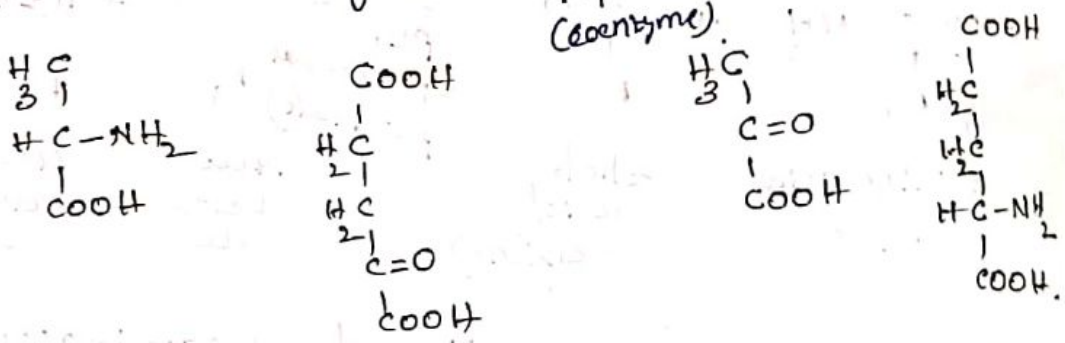 (coenzyme).
H3C
HC-NH2
COOH
COOH
H2C
H2C
C=O
COOH
H3C
C=O
COOH
COOH
H2C
H2C
H-C-NH2
COOH.